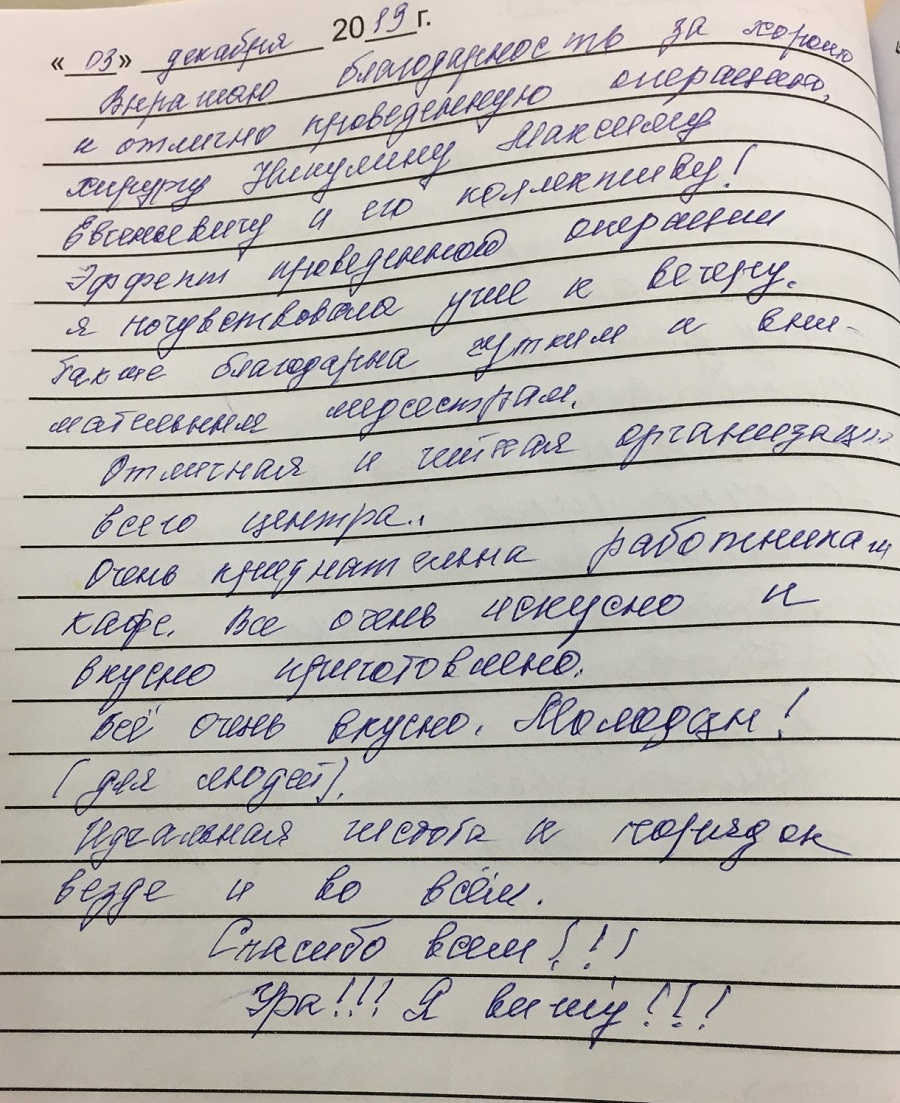 « 03 » декабря 2019 г.
Выражаю благодарность за хорошо
и отлично проведенную операцию,
хирургу Никулину Максиму
Евгеньевичу и его коллективу!
Эффект проведенной операции
я почувствовала уже к вечеру.
Также благодарна чутким и вни-
мательным медсестрам.
Отличная и чёткая организация
всего центра.
Очень признательна работникам
кафе. Все очень искусно и
вкусно приготовлено.
Всё очень вкусно. Молодцы!
(для людей).
Идеальная чистота и порядок
везде и во всём.
Спасибо всем!!!
Ура!!! Я вижу!!!